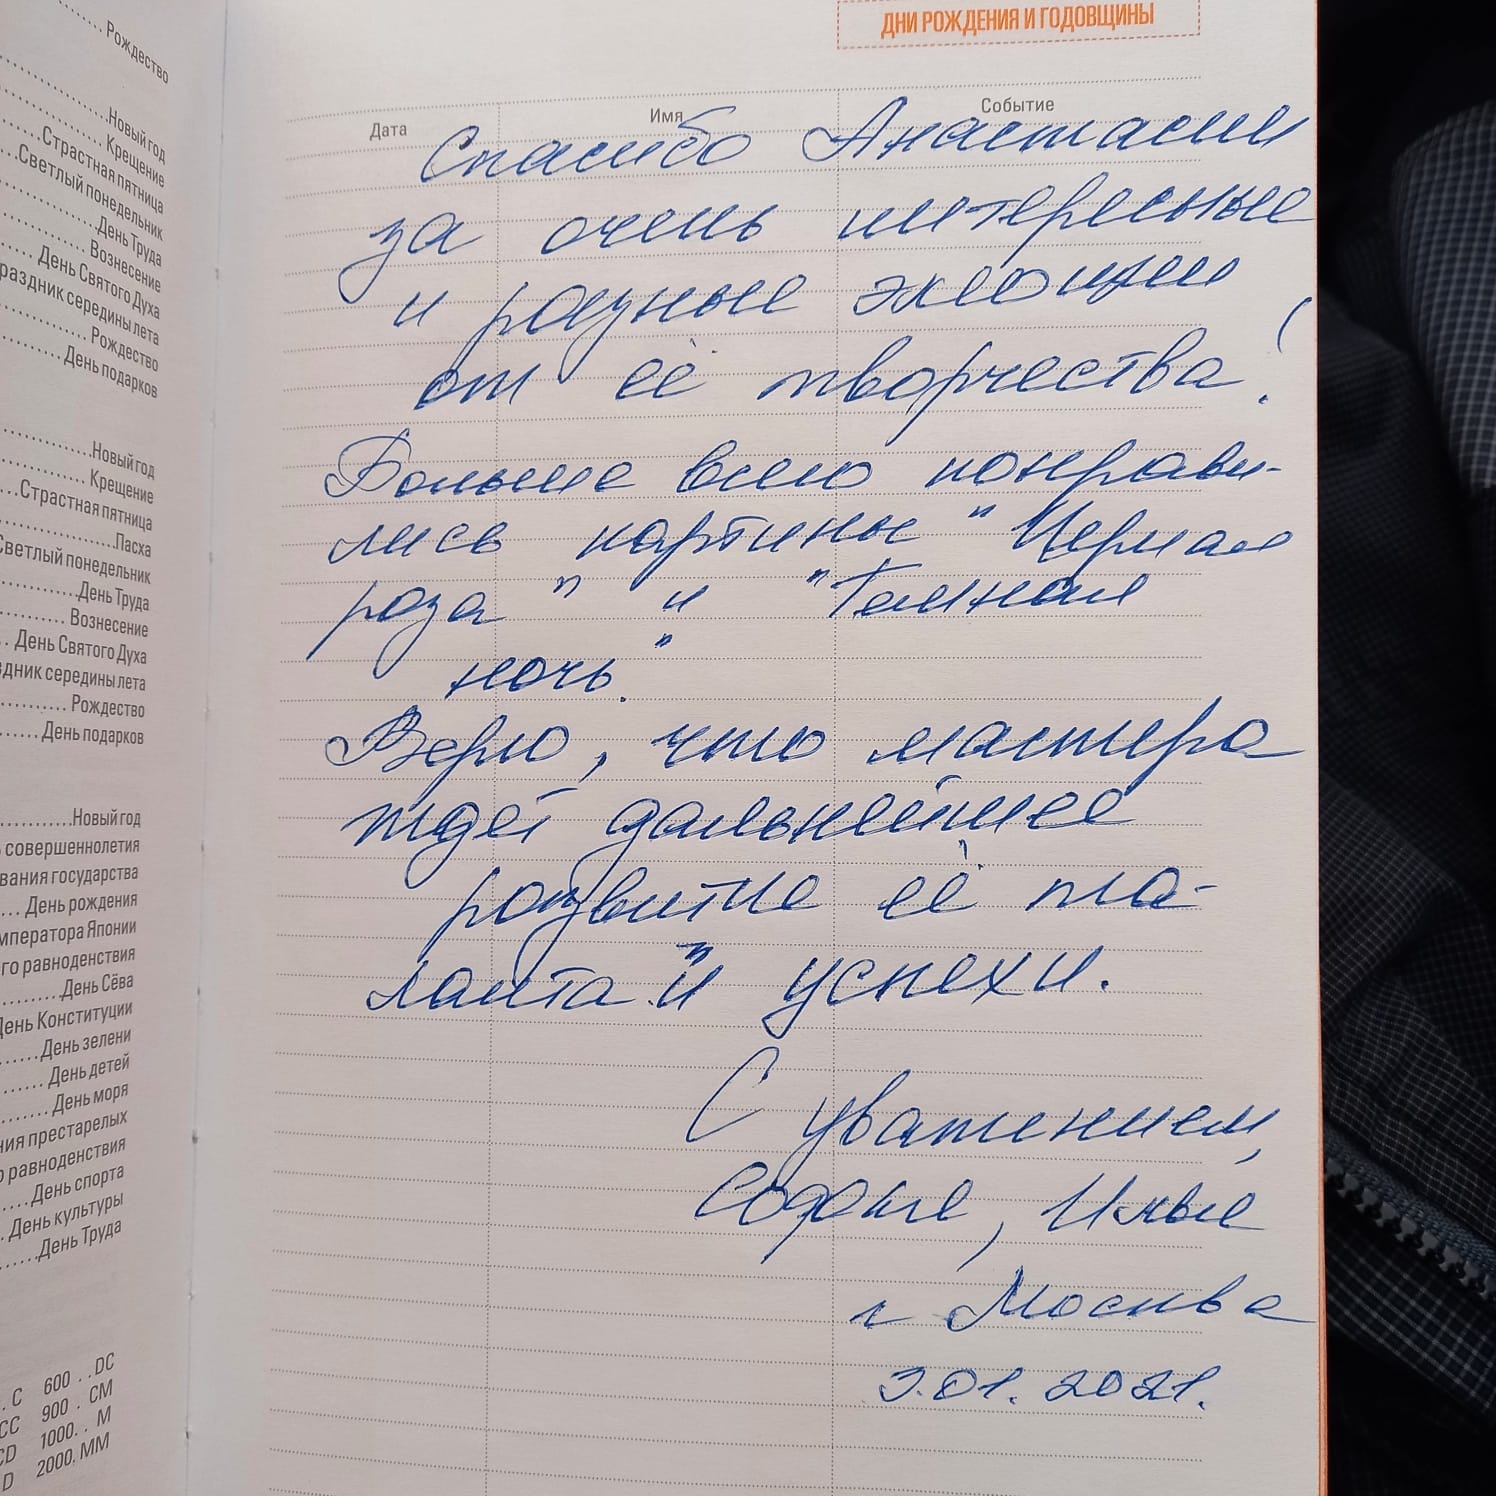 ..... Рождество
..........Новый год
........ Крещение
....Страстная пятница
...Светлый понедельник
День Труда
...... Вознесение
.... День Святого Духа
раздник середины лета
....... Рождество
..... День подарков
..........Новый год
........ Крещение
...Страстная пятница
.......Пасха
Светлый понедельник
........День Труда
........ Вознесение
.. День Святого Духа
здник середины лета
.......... Рождество
...... День подарков
............Новый год
совершеннолетия
вания государства
... День рождения
мператора Японии
го равноденствия
.........День Сёва
День Конституции
......День зелени
.... День детей
.... День моря
ния престарелых
о равноденствия
...День спорта
. День культуры
.....День Труда
. C 600 . . DC
CC 900 . CM
CD 1000. . M
D 2000. MM
ДНИ РОЖДЕНИЯ И ГОДОВЩИНЫ
Дата Имя Событие
Спасибо Анастасии
за очень интересные
и разные эмоции
от её творчества!
Больше всего понрави-
лись картины "Черная
роза" и "Темная
ночь."
Верю, что мастера
ждёт дальнейшее
развитие её та-
ланта и успехи.
С уважением,
Софья, Илья
г Москва
3.01.2021.